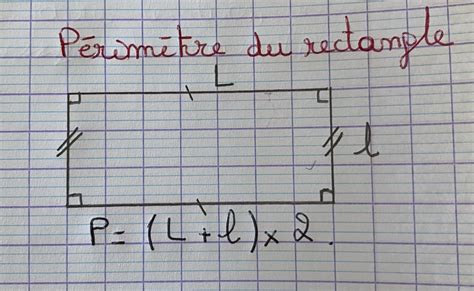 Périmètre du rectangle
L
l
P = (L + l) × 2.